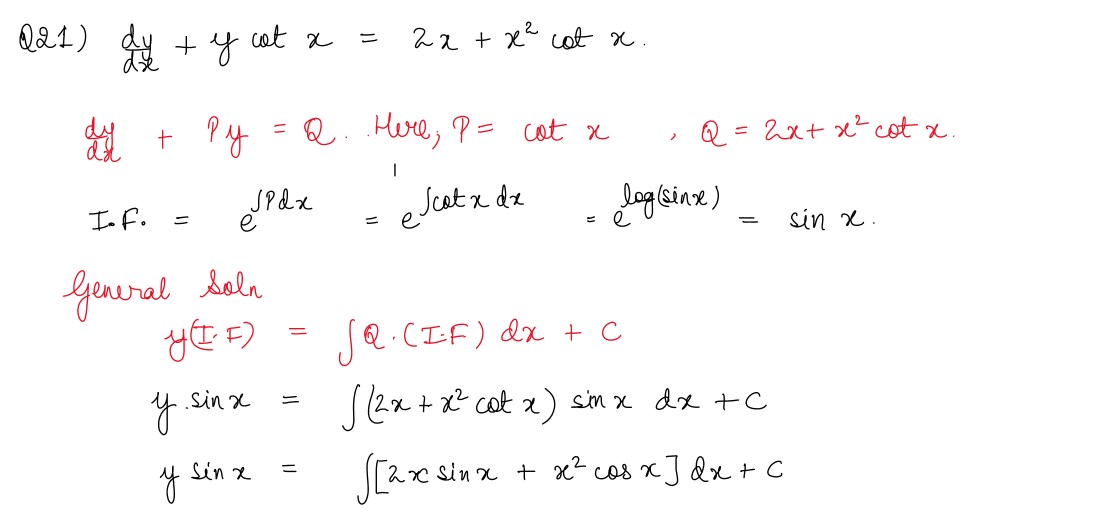 Q21) dy/dx + y cot x = 2x + x² cot x.
dy/dx + Py = Q. Here, P = cot x , Q = 2x + x² cot x.
I.F. = e^∫Pdx = e^∫cot x dx = e^log(sinx) = sin x.
General Soln
y(I.F) = ∫Q.(I.F) dx + C
y.sinx = ∫(2x + x² cot x) sin x dx + C
y sinx = ∫[2x sin x + x² cos x] dx + C